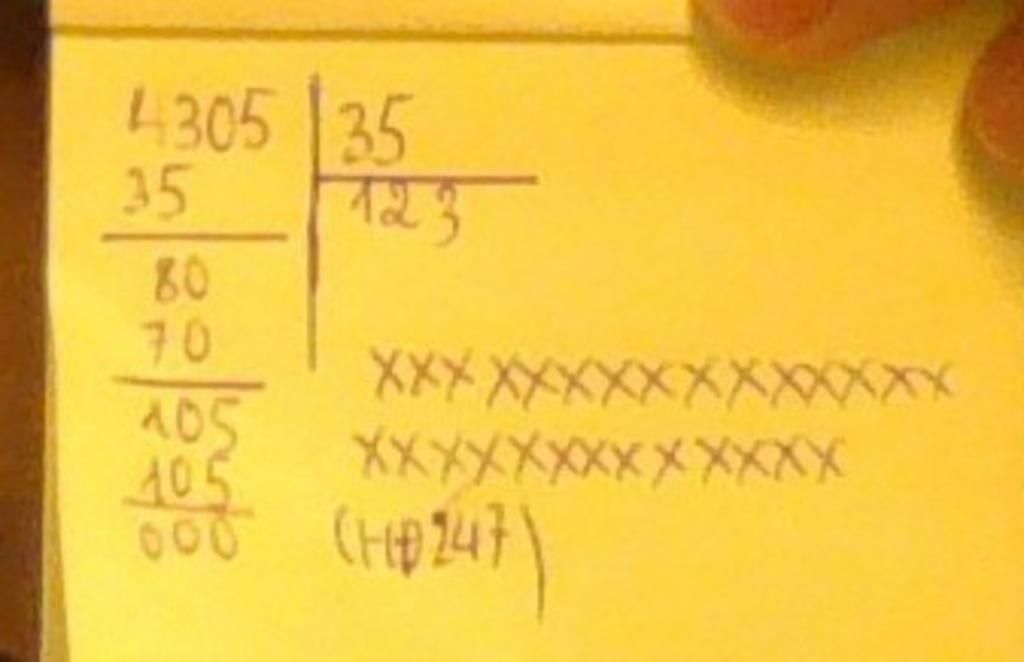 4305 35
35 123
80
70
105
105
000
xxxxxxxxxxxxxxxx
xxxxxxxxxxxxxx